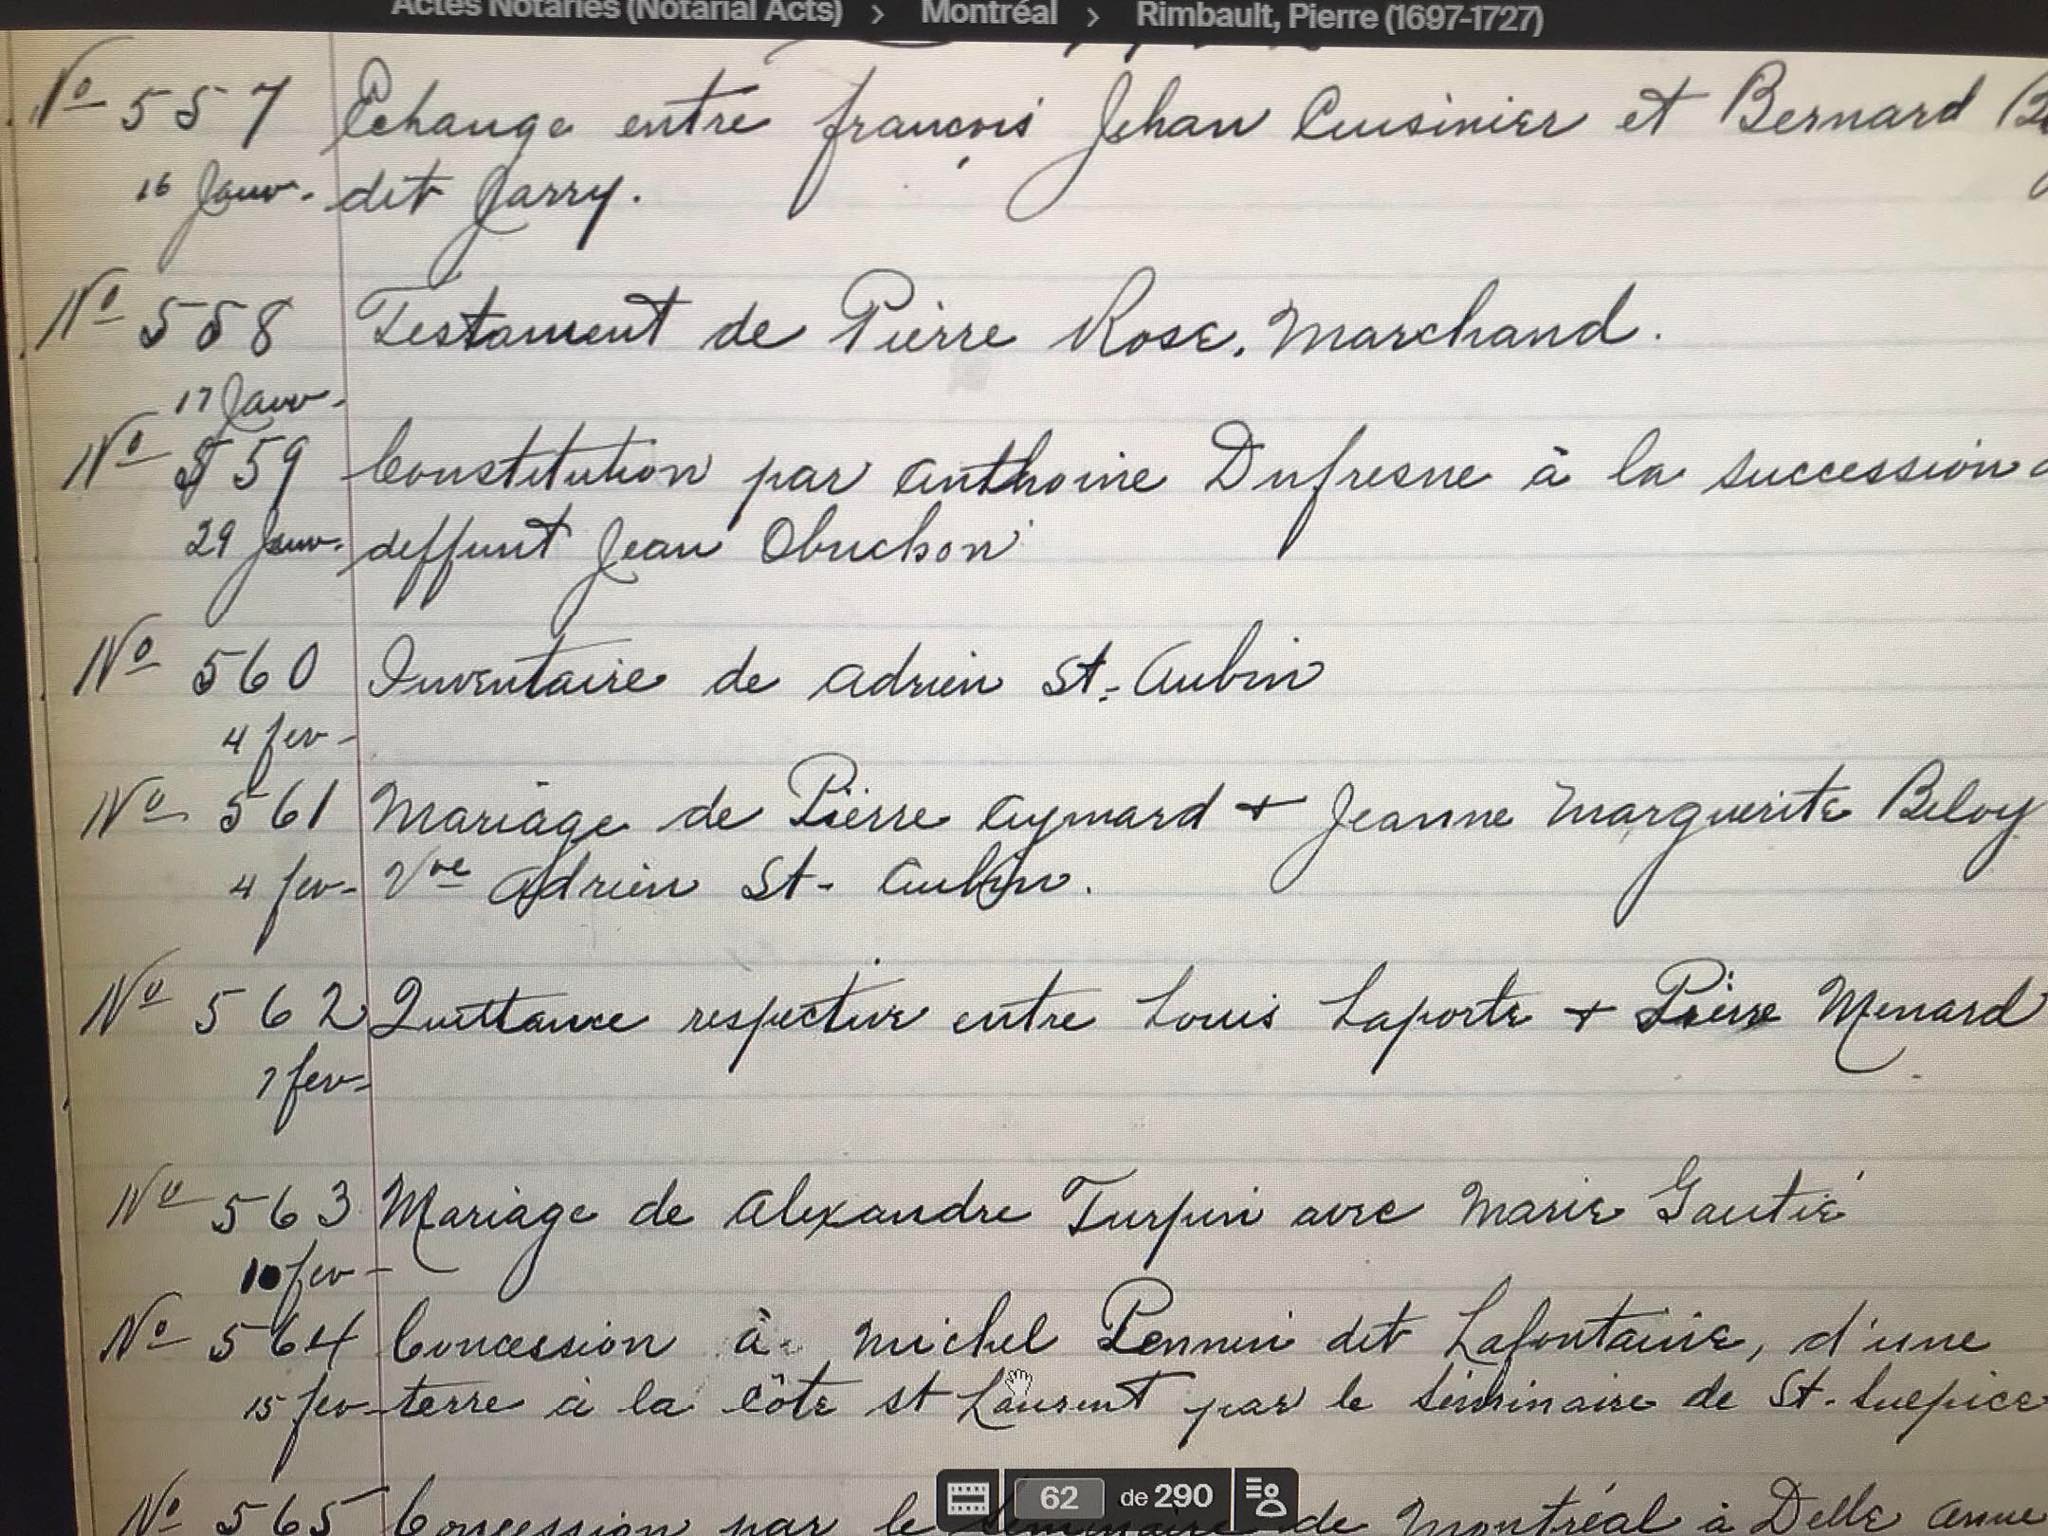 Actes Notariés (Notarial Acts) > Montréal > Rimbault, Pierre (1697-1727)
No 557 Echange entre françois Jehan Cuisinier et Bernard
16 Janv. dit Jarry.
No 558 Testament de Pierre Rose, Marchand.
17 Janv.
No 559 Constitution par Anthoine Dufresne à la succession
29 Janv. deffunt Jean Obuchon
No 560 Inventaire de Adrien St. Aubin
4 fev-
No 561 Mariage de Pierre Aymard + Jeanne Marguerite Beloy
4 fev- Vve Adrien St- Aubin.
No 562 Quittance respective entre Louis Laporte + Pierre Menard
7 fev-
No 563 Mariage de Alexandre Turpin avec Marie Gautié
10 fev-
No 564 Concession à Michel Pennin dit Lafontaine, d'une
15 fev- terre à la côte st Laurent par le séminaire de St. Sulpice
No 565 Concession par le séminaire de Montréal à Delle Anne
62 de 290